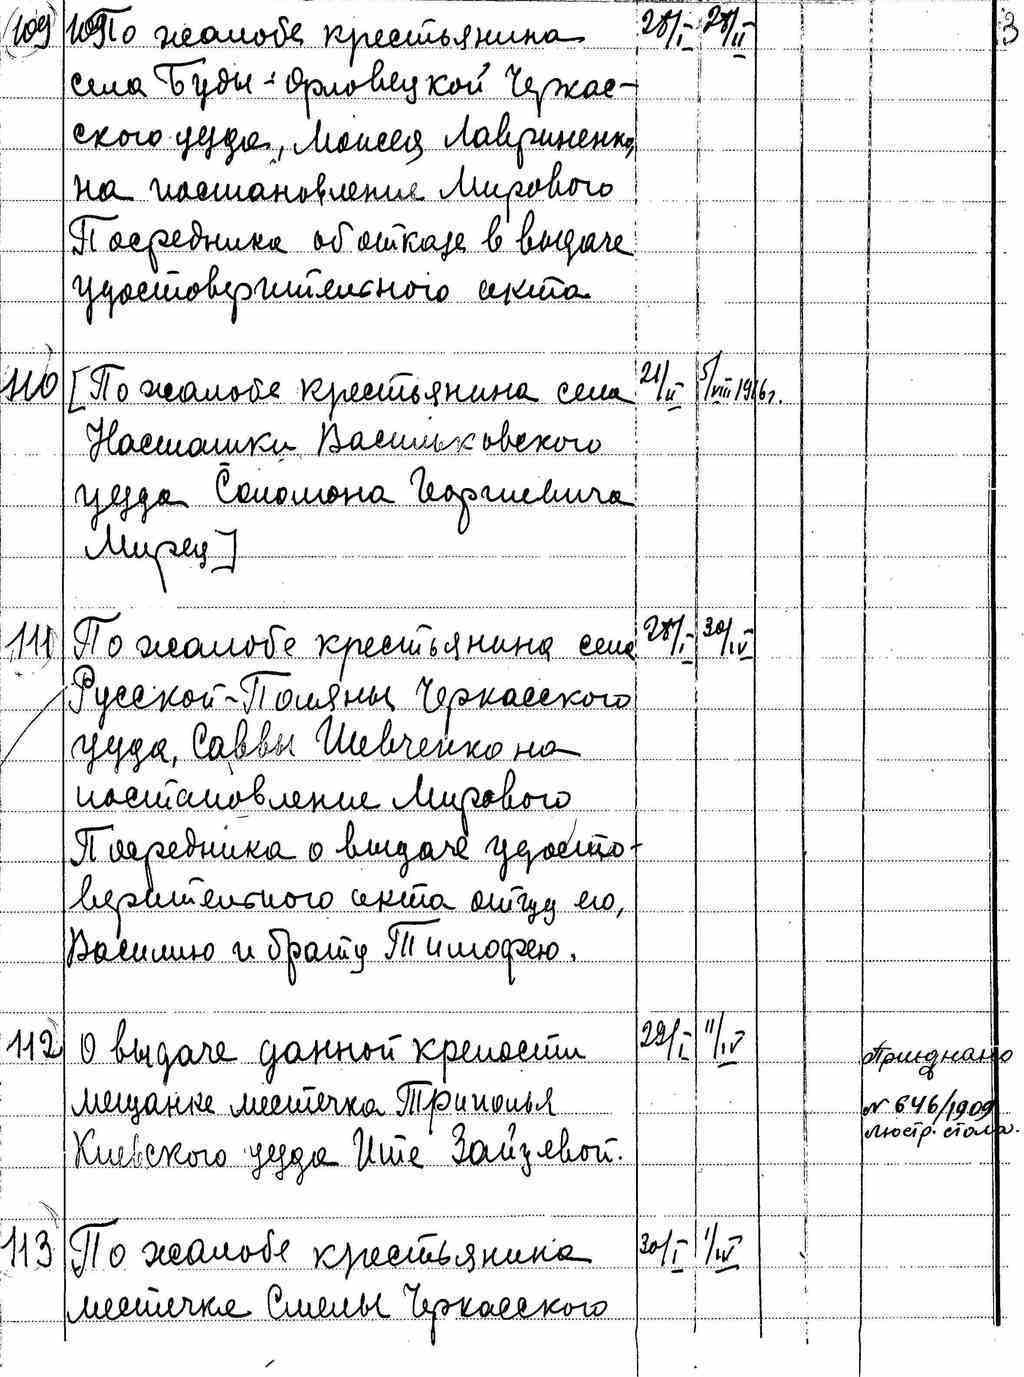 109 109 По жалобе крестьянина 28/I 28/II 3
села Буды-Орловецкой Черкас-
ского уезда, Моисея Лавриненко,
на постановление Мирового
Посредника об отказе в выдаче
удостоверительного акта.
110 [По жалобе крестьянина села 21/II 5/VIII 1916г.
Насташки Васильковского
уезда Соломона Георгиевича
Мирец]
111 По жалобе крестьянина села 28/I 30/IV
Русской-Поляны Черкасского
уезда, Саввы Шевченко на
постановление Мирового
Посредника о выдаче удосто-
верительного акта отцу его,
Василию и брату Тимофею.
112 О выдаче данной крепости 29/I 11/IV
мещанке местечка Триполья
Киевского уезда Ите Зайзевой.
Приєднано
№ 646/1909
люстр. стола.
113 По жалобе крестьянина 30/I 1/IV
местечка Смелы Черкасского